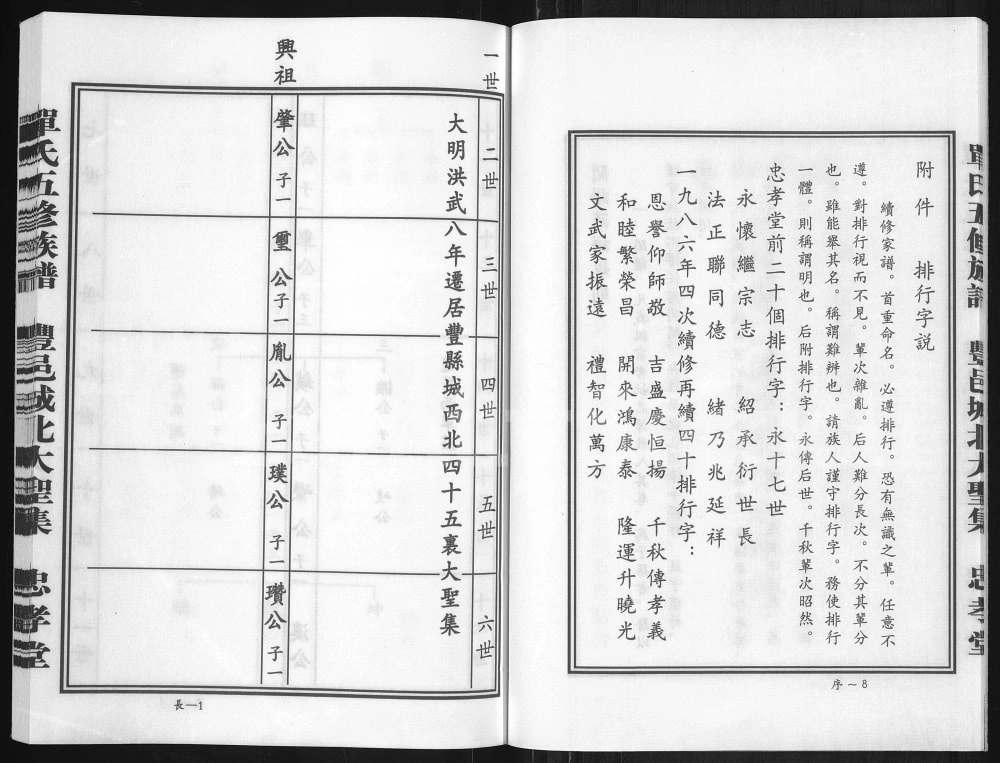 單氏五修族譜 豐邑城北大聖集 忠孝堂
附件 排行字説
續修家譜。首重命名。必遵排行。恐有無識之輩。任意不
遵。對排行視而不見。輩次雜亂。后人難分長次。不分其輩分
也。雖能舉其名。稱謂難辨也。請族人謹守排行字。務使排行
一體。則稱謂明也。后附排行字。永傳后世。千秋輩次昭然。
忠孝堂前二十個排行字：永十七世
永懷繼宗志 紹承衍世長
法正聯同德 緒乃兆延祥
一九八六年四次續修再續四十排行字：
恩譽仰師敬 吉盛慶恒揚 千秋傳孝義
和睦繁榮昌 開來鴻康泰 隆運升曉光
文武家振遠 禮智化萬方
序～8
一世 二世 三世 四世 五世 六世
大明洪武八年遷居豐縣城西北四十五裏大聖集
興祖 肇公 子一 璽公 子一 胤公 子一 璞公 子一 瓚公 子一
長—1
單氏五修族譜 豐邑城北大聖集 忠孝堂